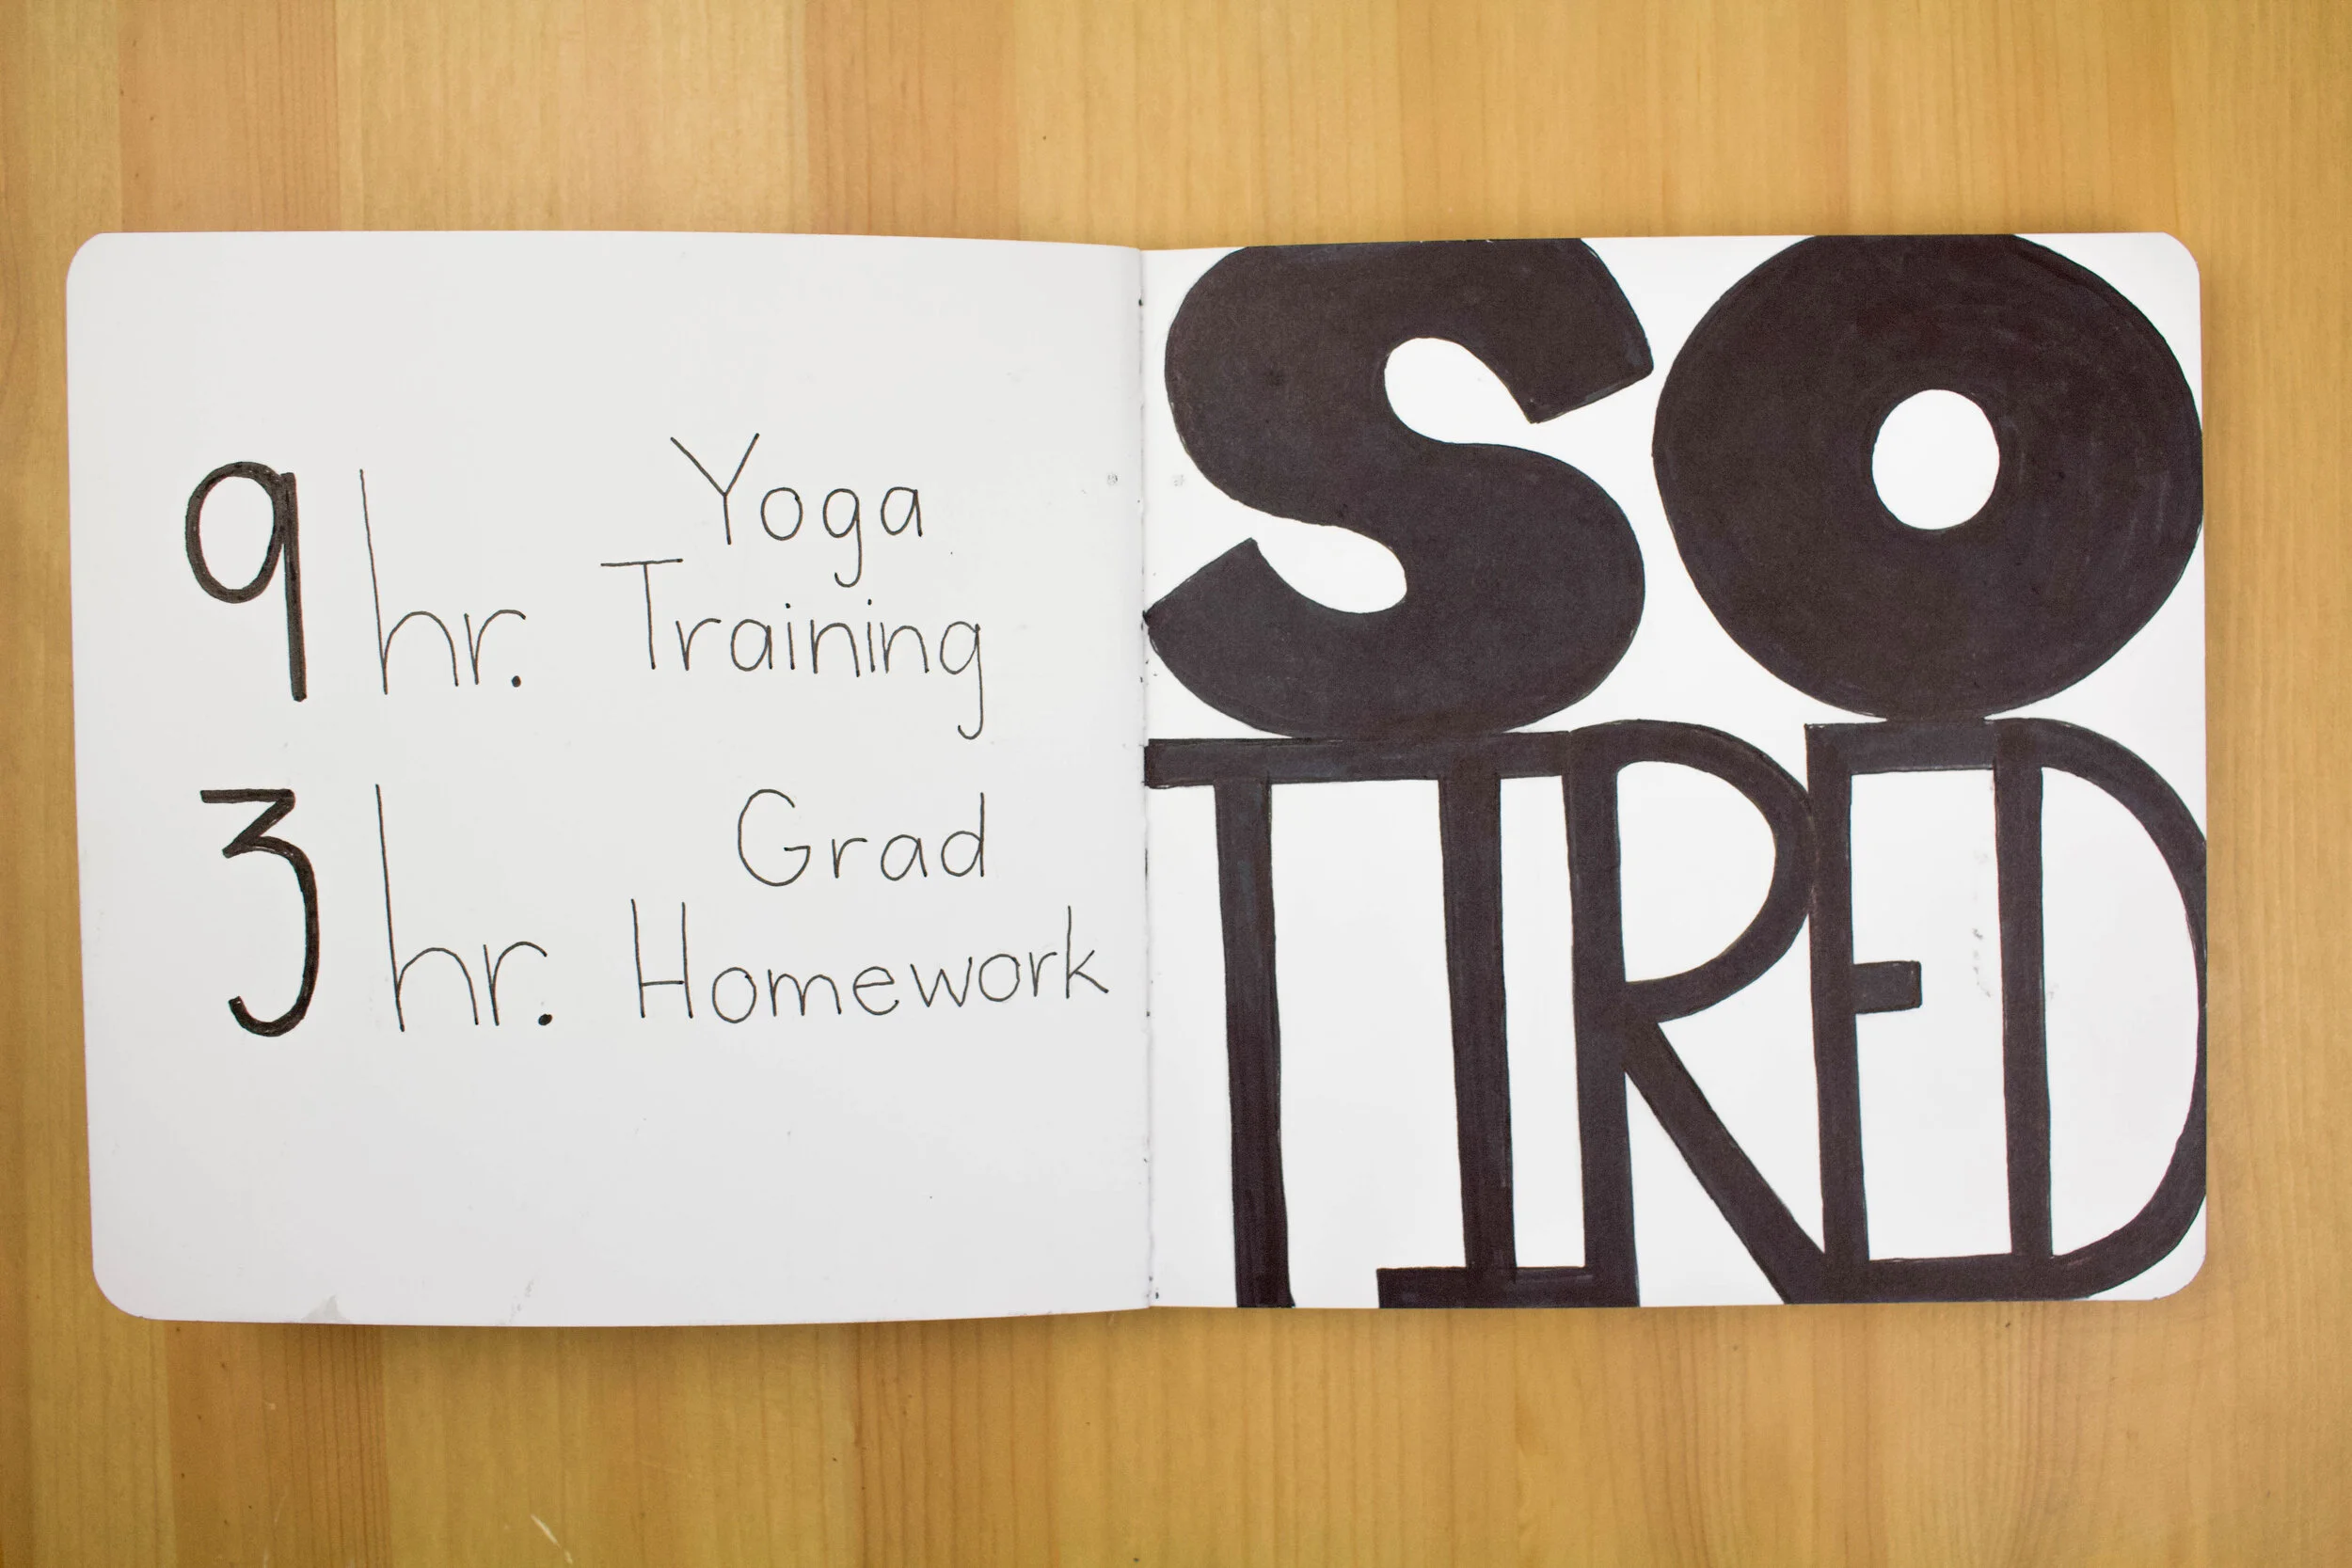 9 hr. Yoga
Training
3 hr. Grad
Homework
SO
TIRED